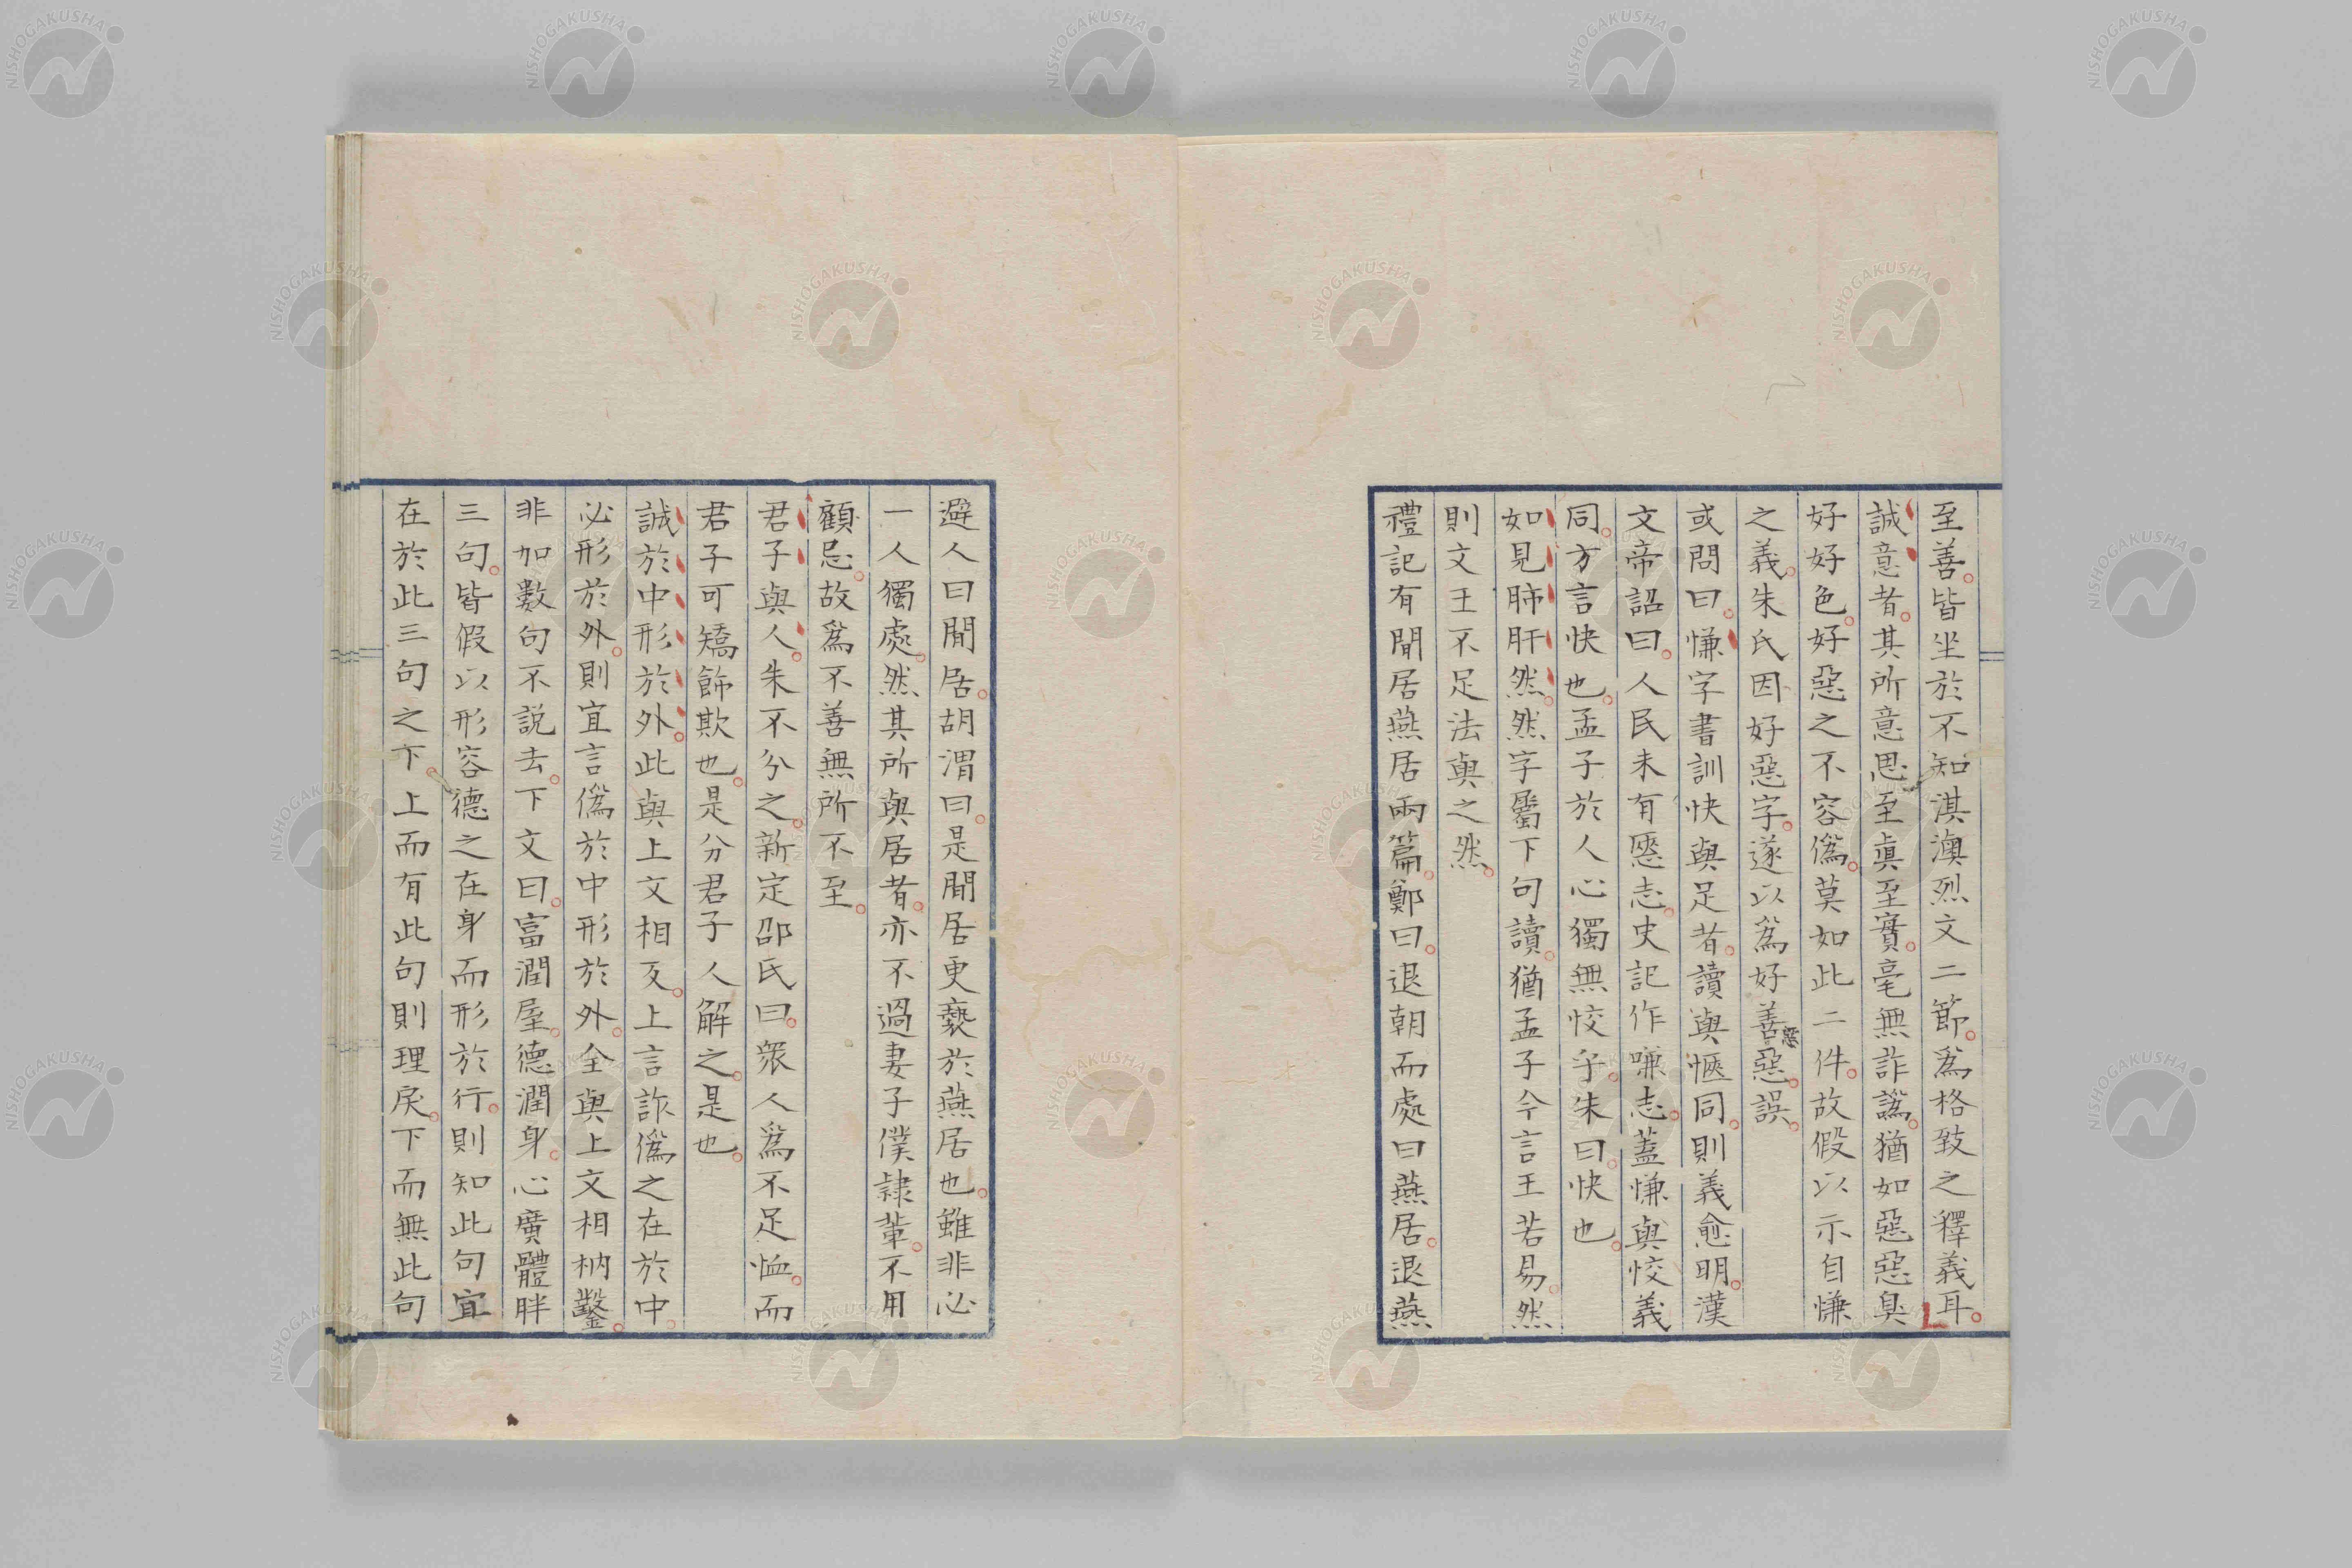 至善皆坐於不知淇澳烈文二節爲格致之釋義耳
誠意者其所意思至眞至實毫無詐譌猶如惡惡臭
好好色好惡之不容僞莫如此二件故假以示自慊
之義朱氏因好惡字遂以爲好善惡惡誤
或問曰慊字書訓快與足者讀與愜同則義愈明漢
文帝詔曰人民未有愜志史記作嗛志蓋慊與恔義
同方言快也孟子於人心獨無恔乎朱曰快也
如見肺肝然然字屬下句讀猶孟子今言王若易然
則文王不足法與之然
禮記有閒居燕居兩篇鄭曰退朝而處曰燕居退燕
避人曰閒居胡渭曰是閒居更褻於燕居也雖非必
一人獨處然其所與居者亦不過妻子僕隷輩不用
顧忌故爲不善無所不至
君子與人朱不分之新定邵氏曰衆人爲不足恤而
君子可矯飾欺也是分君子人解之是也
誠於中形於外此與上文相反上言詐僞之在於中
必形於外則宜言僞於中形於外全與上文相枘鑿
非加數句不説去下文曰富潤屋德潤身心廣體胖
三句皆假以形容德之在身而形於行則知此句宜
在於此三句之下上而有此句則理戾下而無此句
NISHOGAKUSHA